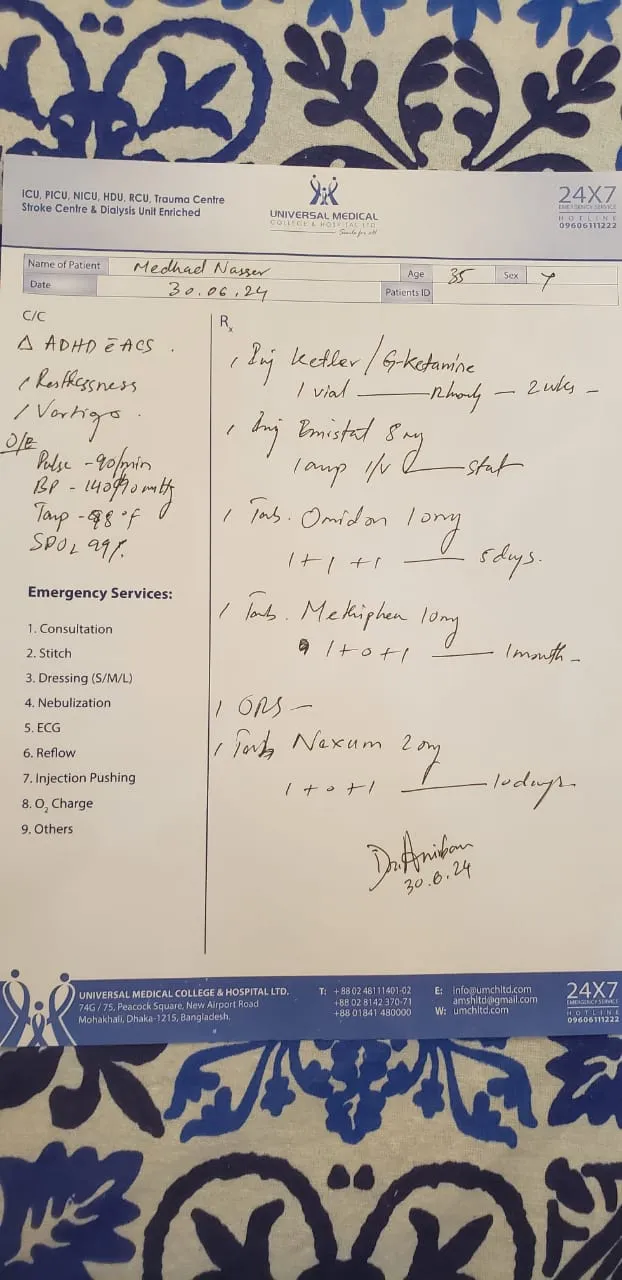 ICU, PICU, NICU, HDU, RCU, Trauma Centre
Stroke Centre & Dialysis Unit Enriched
UNIVERSAL MEDICAL
COLLEGE & HOSPITAL LTD.
24X7
EMERGENCY SERVICE
HOTLINE
09606111222
Name of Patient Medhad Nasser Age 35 Sex
Date 30.06.24 Patients ID
C/C
Δ ADHD c̄ ACS .
Restlessness
Vertigo .
O/E
Pulse - 90/min
BP - 140/90 mmHg
Temp - 98°F
SPO2 99%
Emergency Services:
1. Consultation
2. Stitch
3. Dressing (S/M/L)
4. Nebulization
5. ECG
6. Reflow
7. Injection Pushing
8. O2 Charge
9. Others
Rx
Inj Ketler / G-Ketamine
1 vial — — 2 wks -
Inj Emistat 8 mg
1 amp I/V — stat
Tab. Omidon 10mg
1+1+1 — 5 days.
Tab. Methiphen 10mg
1+0+1 — 1 month -
ORS -
Tab Nexum 20mg
1+0+1 — 10 days
Dr. Anirban
30.6.24
UNIVERSAL MEDICAL COLLEGE & HOSPITAL LTD.
74G / 75, Peacock Square, New Airport Road
Mohakhali, Dhaka-1215, Bangladesh.
T: +88 02 48111401-02
+88 02 8142 370-71
+88 01841 480000
E: info@umchltd.com
amshltd@gmail.com
W: umchltd.com
24X7
EMERGENCY SERVICE
HOTLINE
09606111222